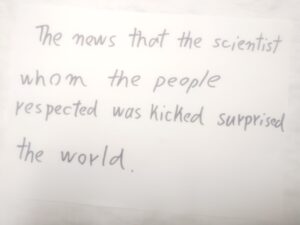 The news that the scientist
whom the people
respected was kicked surprised
the world.